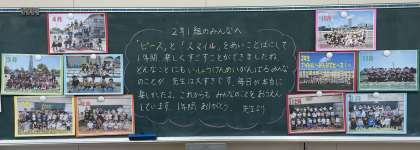 2年1組のみんなへ
「ピース」と「スマイル」をあいことばにして
1年間 楽しくすごすことができましたね。
どんなことにも いっしょうけんめいがんばるみんな
のことが 先生は大すきです。毎日が本当に
楽しかったよ。これからも みんなのことを おうえん
しています。1年間 ありがとう。 先生より
4月